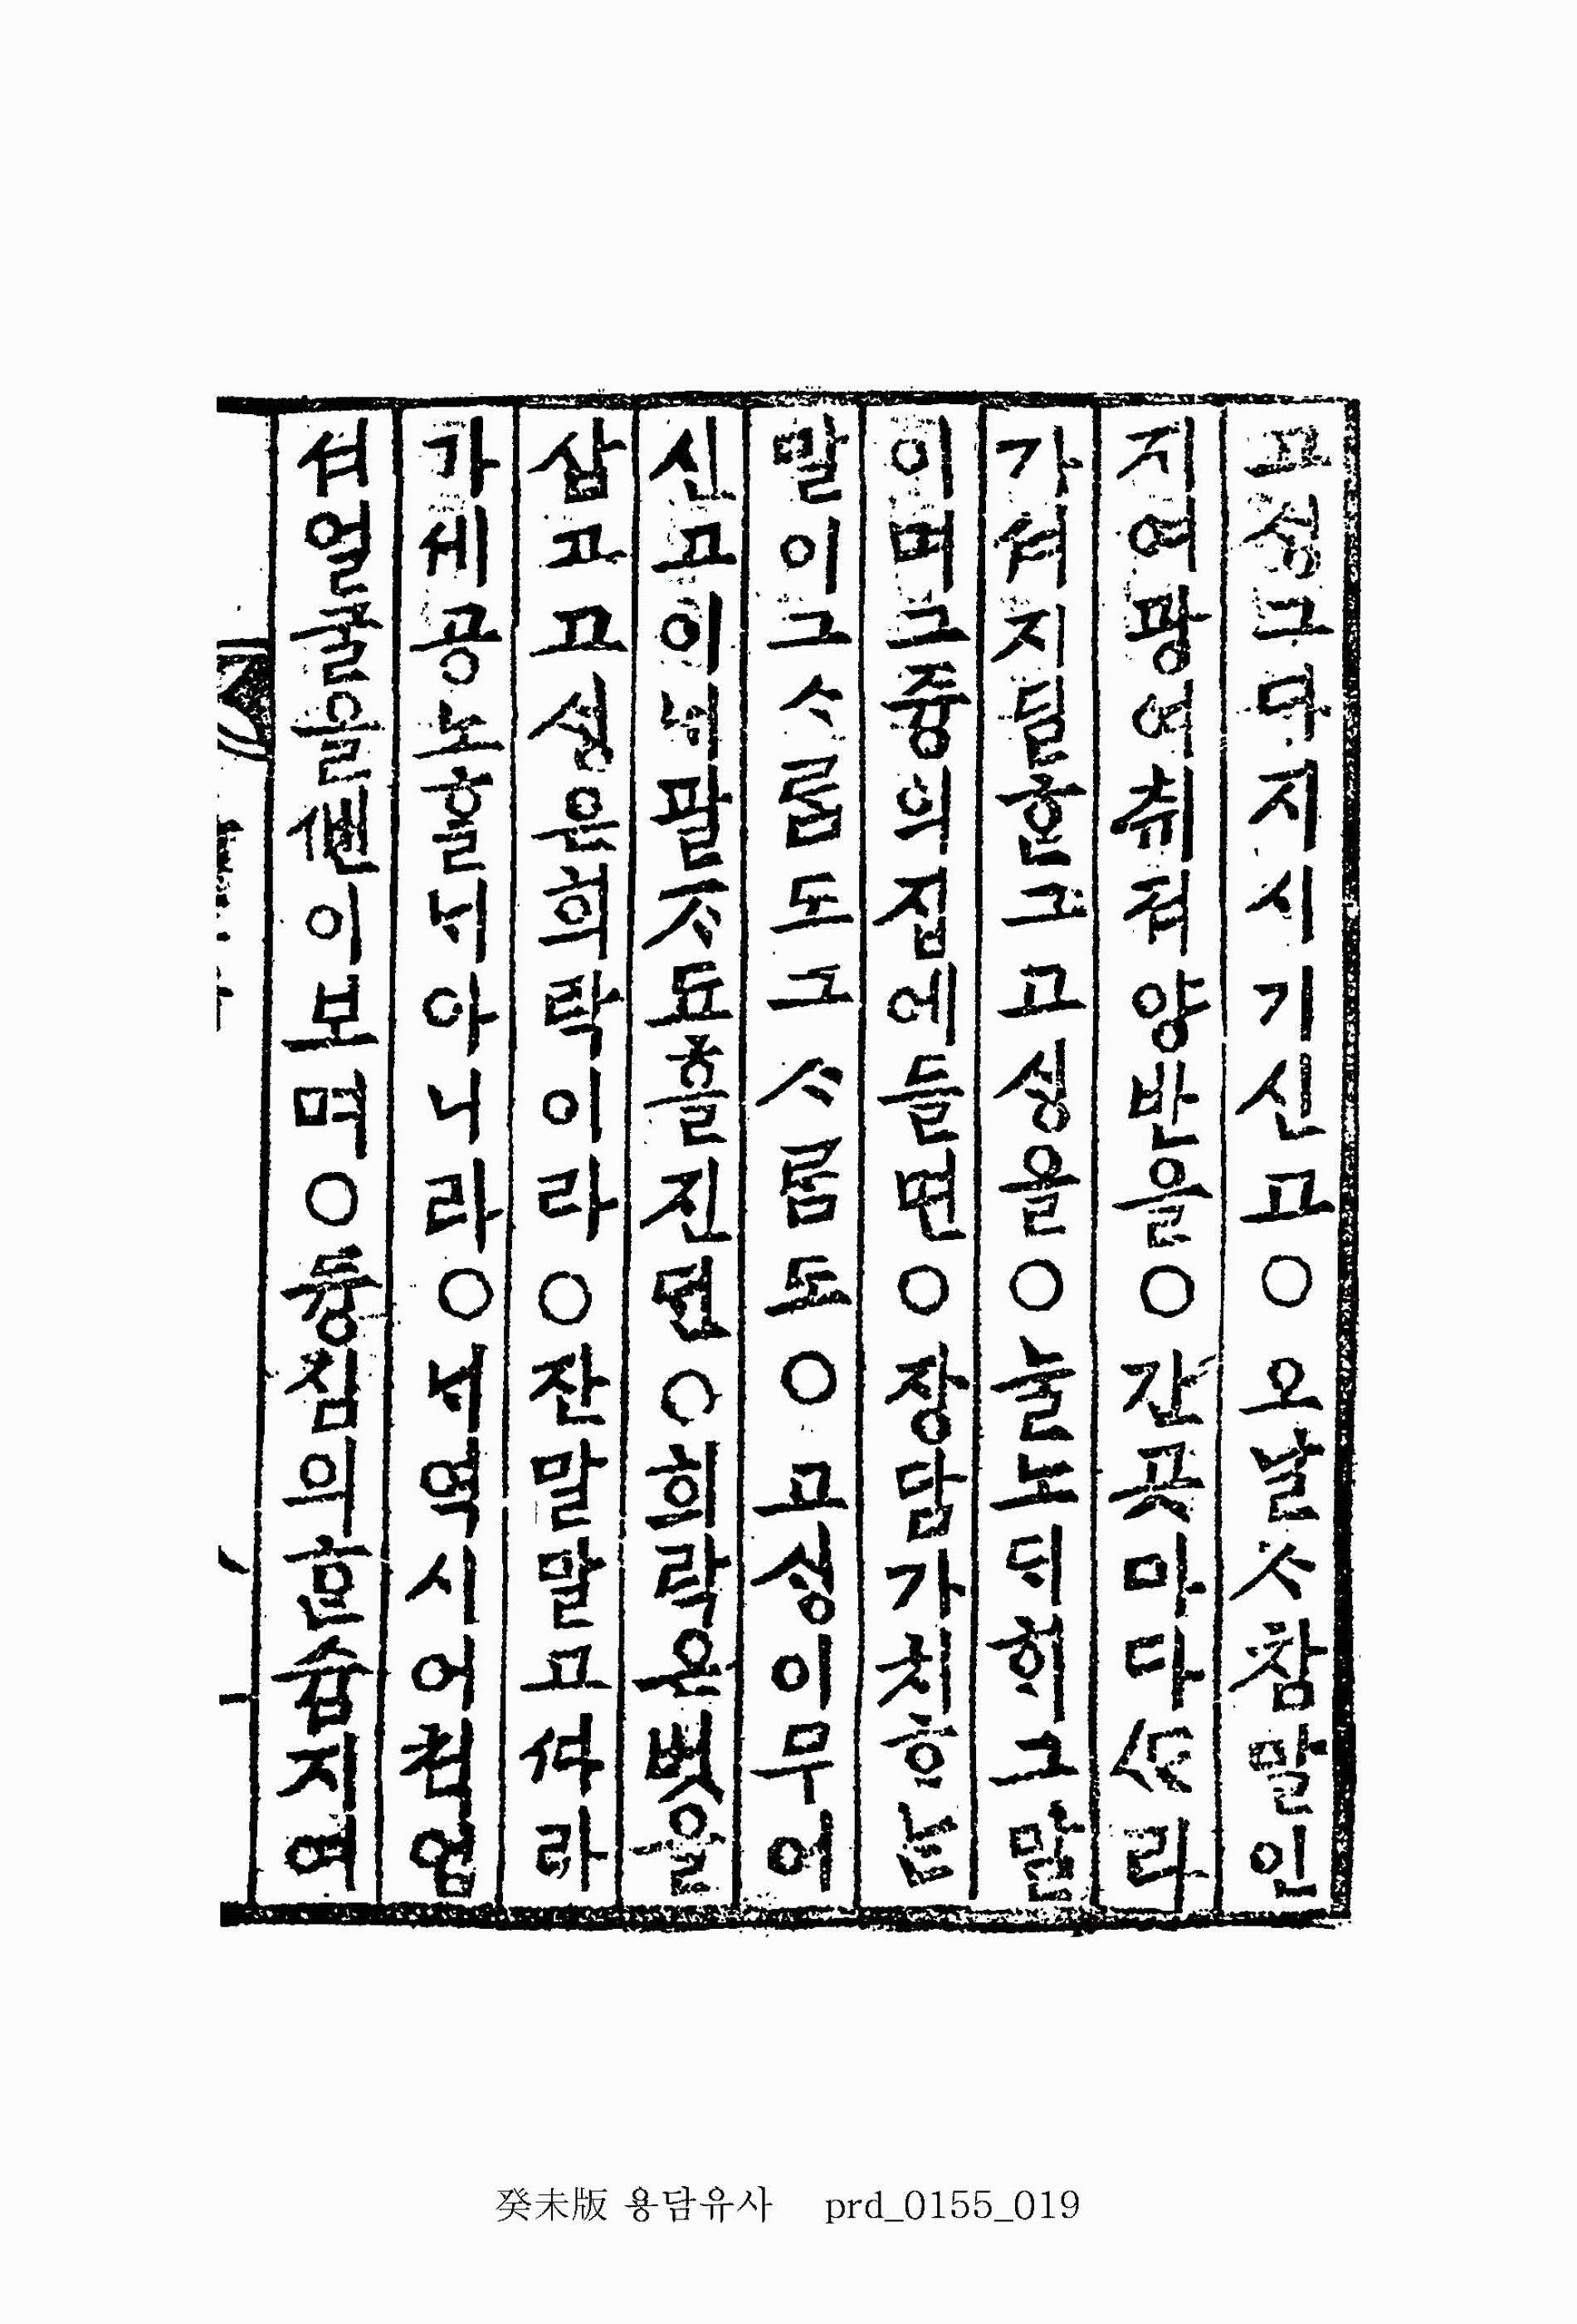 고셩그다지시기신고○오날ᄉᆞ참말인
지여팡여취져양반을○간곳마다ᄯᆞ라
가셔지딜ᄒᆞᆫ그고ᄉᆡᆼ을○눌노ᄃᆡᄒᆡ그말
이며그즁의집에들면○장담가치ᄒᆞᄂᆞᆫ
말이그ᄉᆞᄅᆞᆷ도그ᄉᆞᄅᆞᆷ도○고ᄉᆡᆼ이무어
신고이ᄂᆡ팔ᄌᆞ됴흘진뎐○희락은벗을
삽고고ᄉᆡᆼ은희락이라○잔말말고ᄯᅡ라
가세공노ᄒᆞᆯᄂᆡ아니라○ᄂᆡ역시어쳑업
셔얼굴을ᄲᅥᆫ이보며○듕심의ᄒᆞᆫ숨지여
癸未版 용담유사 prd_0155_019